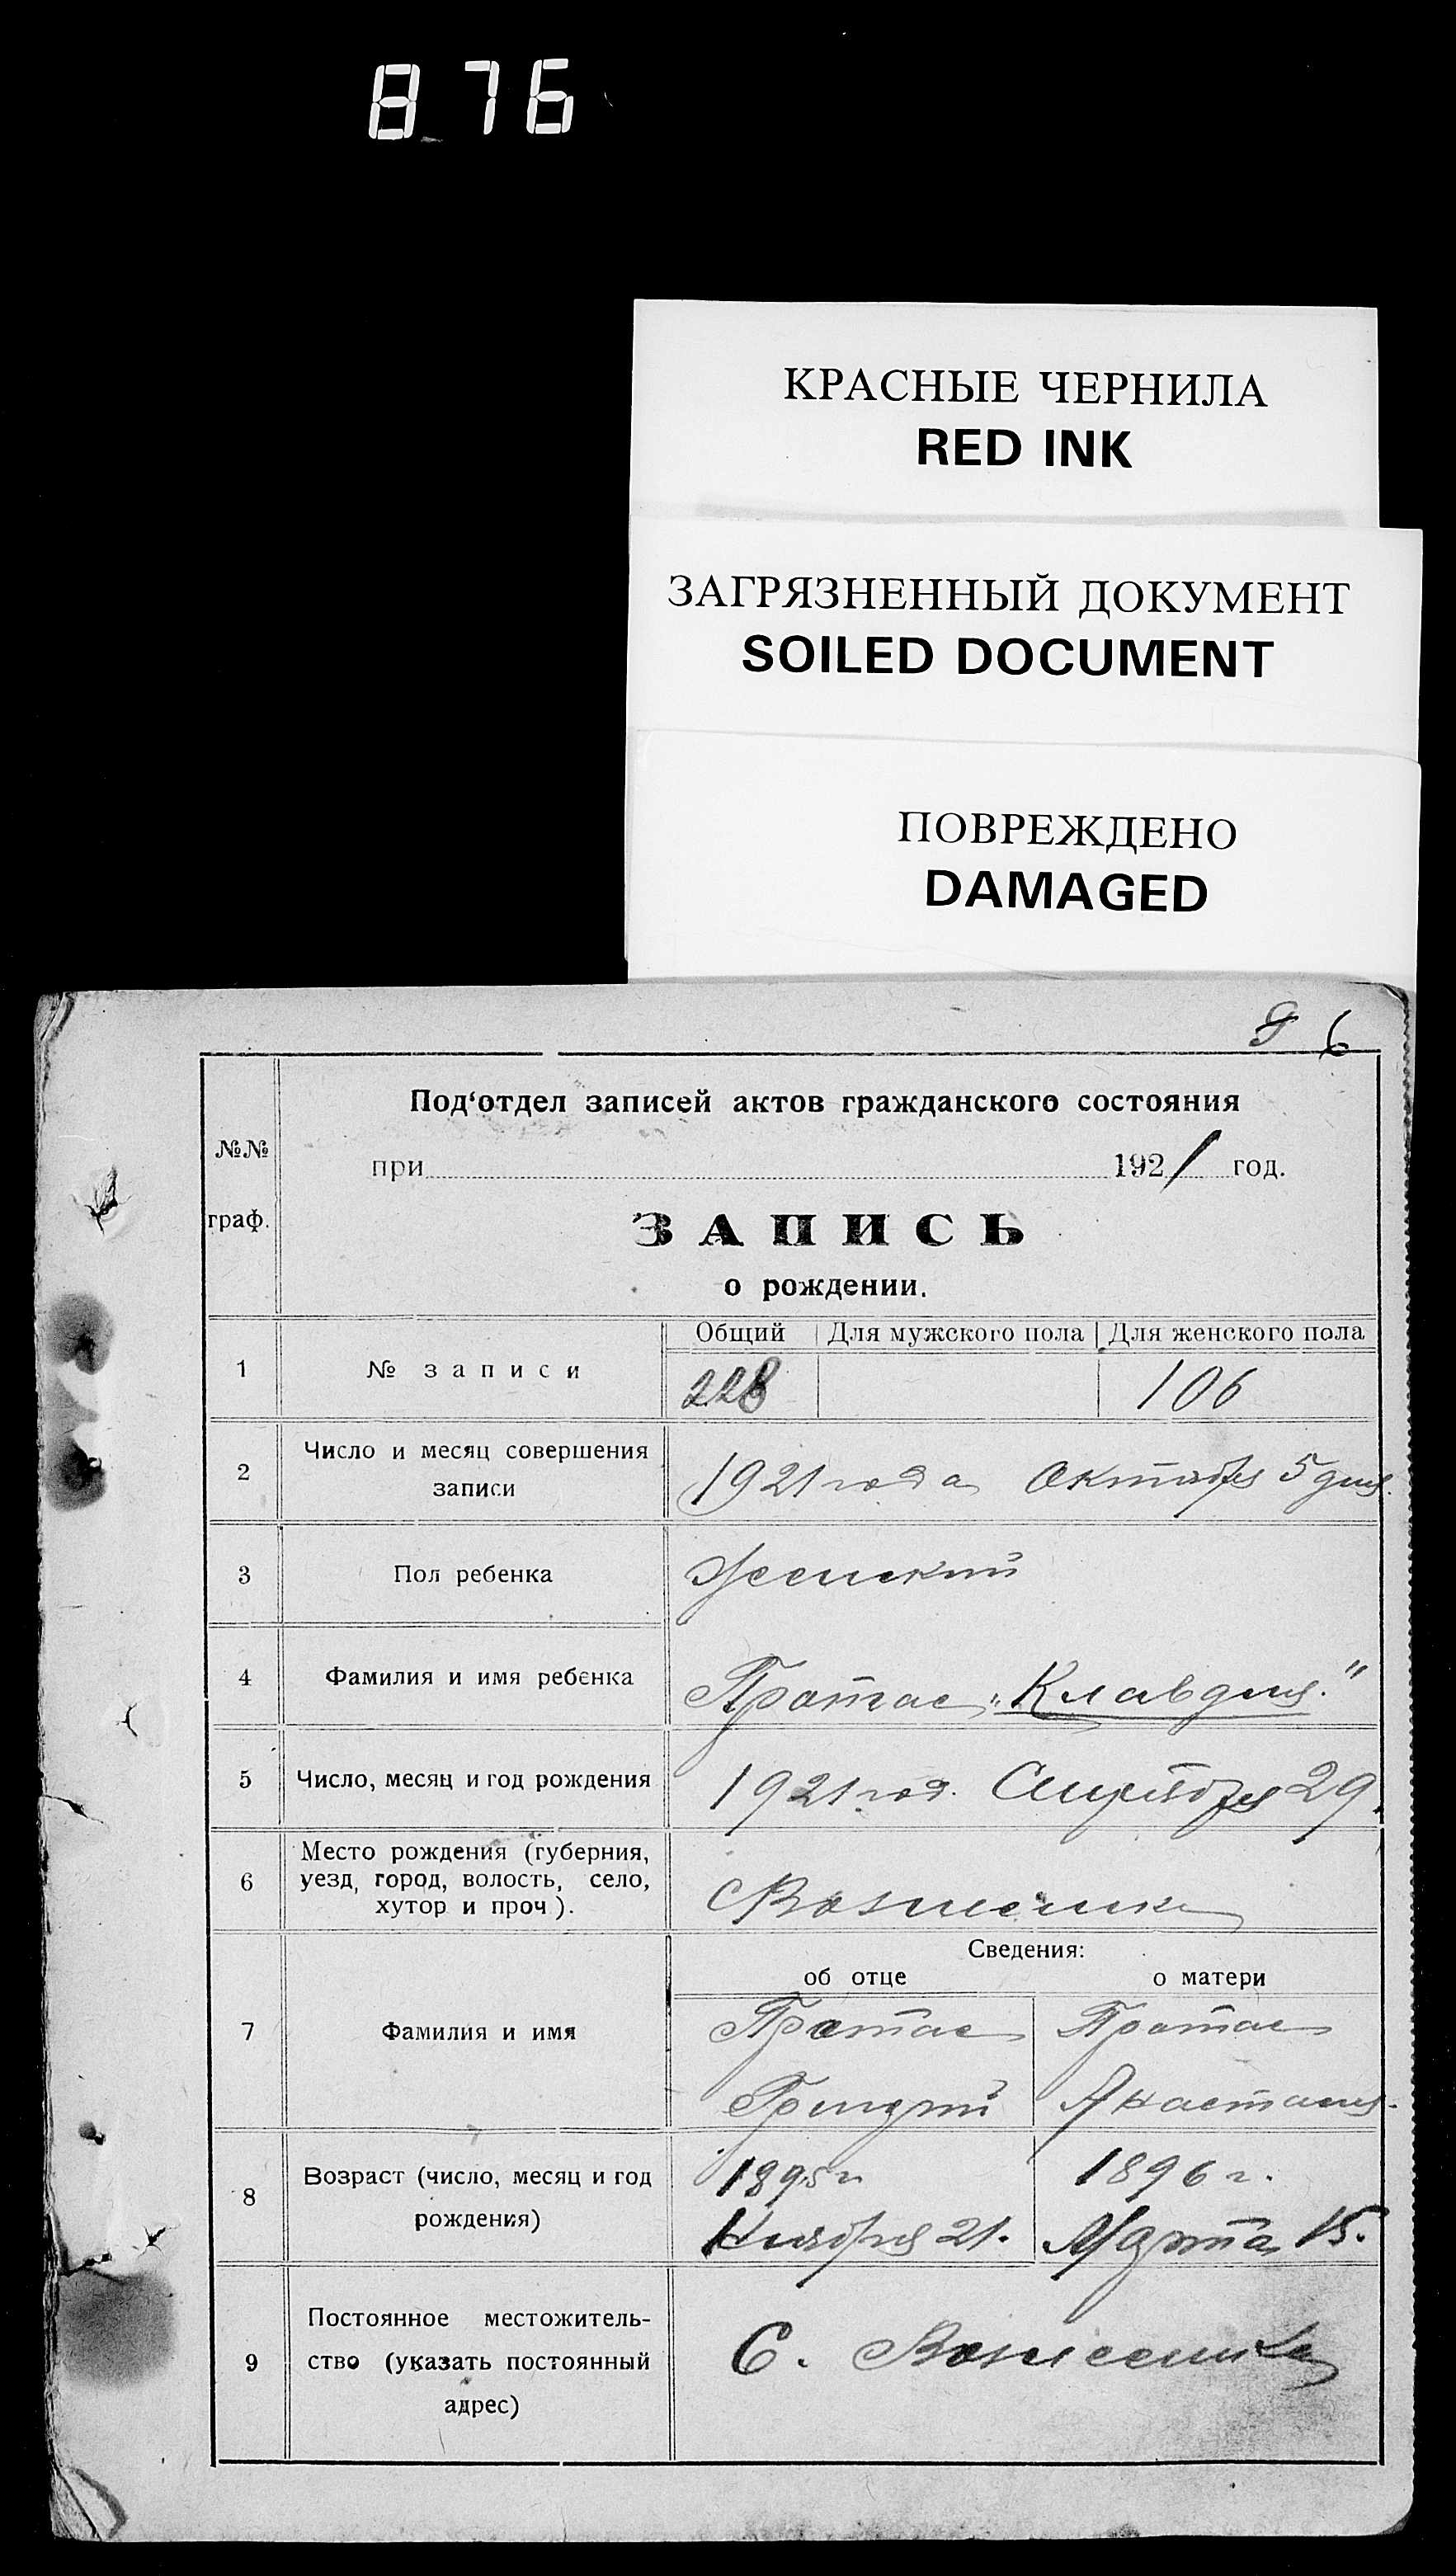 876
КРАСНЫЕ ЧЕРНИЛА
RED INK
ЗАГРЯЗНЕННЫЙ ДОКУМЕНТ
SOILED DOCUMENT
ПОВРЕЖДЕНО
DAMAGED
6
№№
граф.
Под‘отдел записей актов гражданского состояния
при 1921 год.
ЗАПИСЬ
о рождении.
Общий Для мужского пола Для женского пола
1 № записи 228 106
2 Число и месяц совершения
записи
1921 года Октября 5 дня.
3 Пол ребенка Женский
4 Фамилия и имя ребенка Протас „Клавдия."
5 Число, месяц и год рождения 1921 год. 29.
6 Место рождения (губерния,
уезд, город, волость, село,
хутор и проч).
Сведения:
об отце о матери
7 Фамилия и имя
Протас Протас
Анастасия.
8 Возраст (число, месяц и год
рождения)
1895 г. 1896 г.
Ноября 21. Марта 15.
9 Постоянное местожитель-
ство (указать постоянный
адрес)
С. Вознесенка